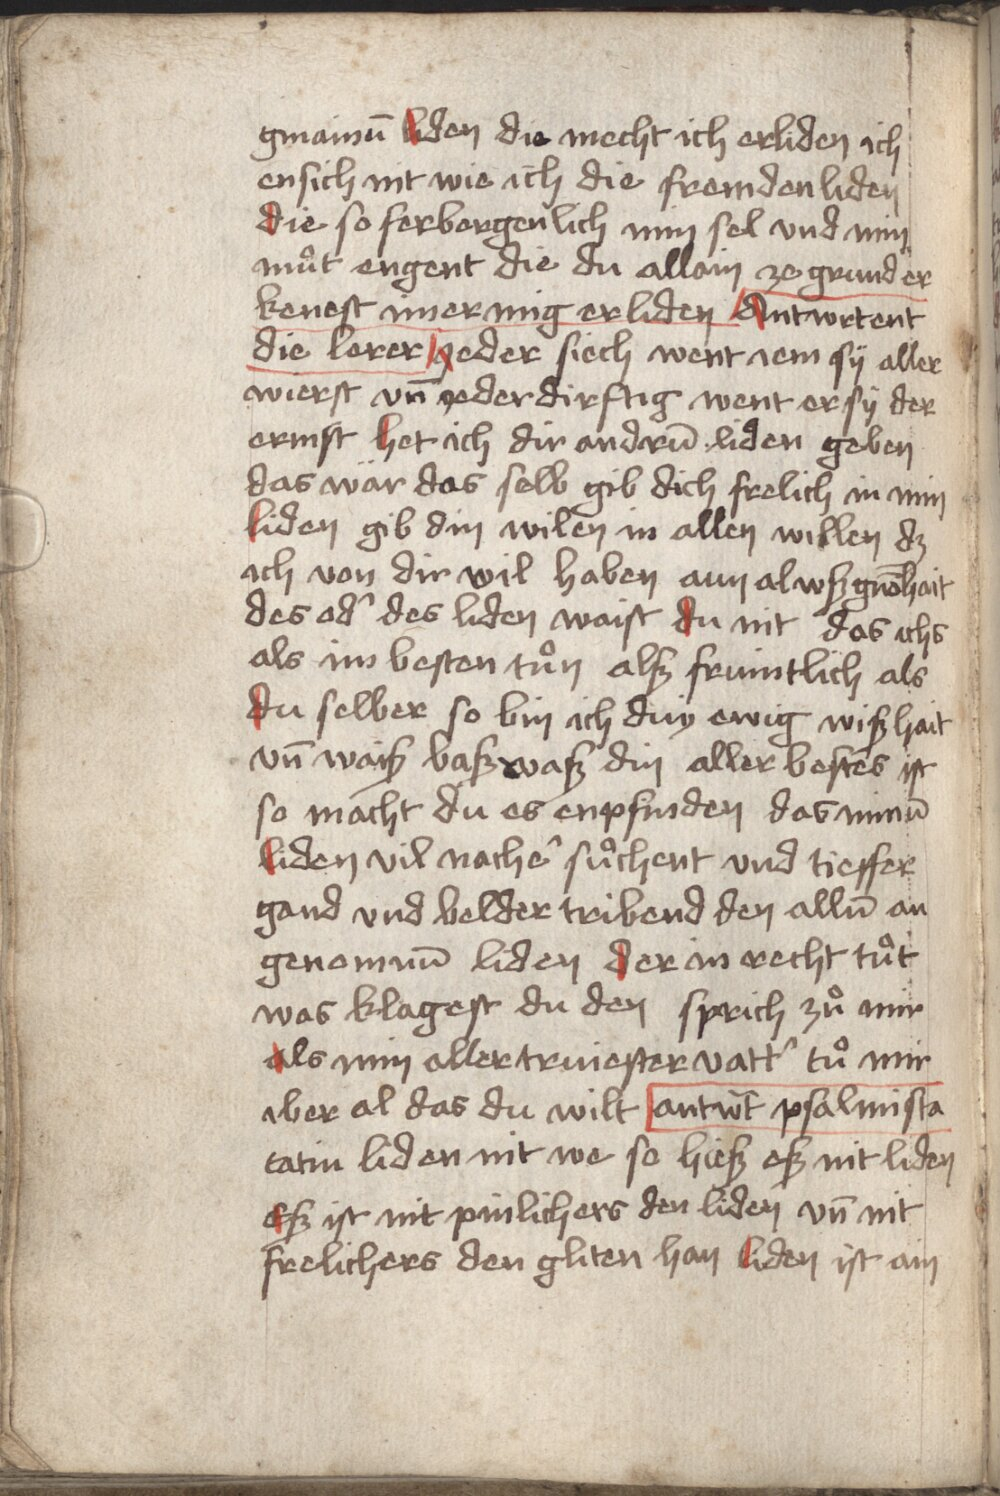 gmainū liden die mecht ich erliden ich
ensich nit wie ich die fremden liden
die so ferborgenlich min sel vnd min
můt engent die du allain ze grund er
kenest imer mig erliden Antwrtent
die lerer yeder siech went iem sÿ aller
wierst vn̄ yeder dirftig went er sÿ der
ermst het ich dir andrū liden geben
das wär das selb gib dich frelich in min
liden gib din wilen in allen willen dz
ich von dir wil haben aun alwß gnōhait
des od̓ des liden waist du nit das ichs
als im besten tůn alß fruintlich als
du selber so bin ich diuy ewig wißhait
vn̄ waiß baß waß din aller bestes ist
so macht du es enpfinden das minū
liden vil nache̓ sůchent vnd tieffer
gand vnd belder tribend den allū an
genomnū liden der im recht tůt
was klagest du den sprich zů mir
als min aller truiester vatt̓ tů mir
iber al das du wilt antwt̄ psalmista
tatin liden nit we so hieß eß nit liden
Eß ist nit pinlichers den liden vn̄ nit
frelichers den gliten han liden ist ain